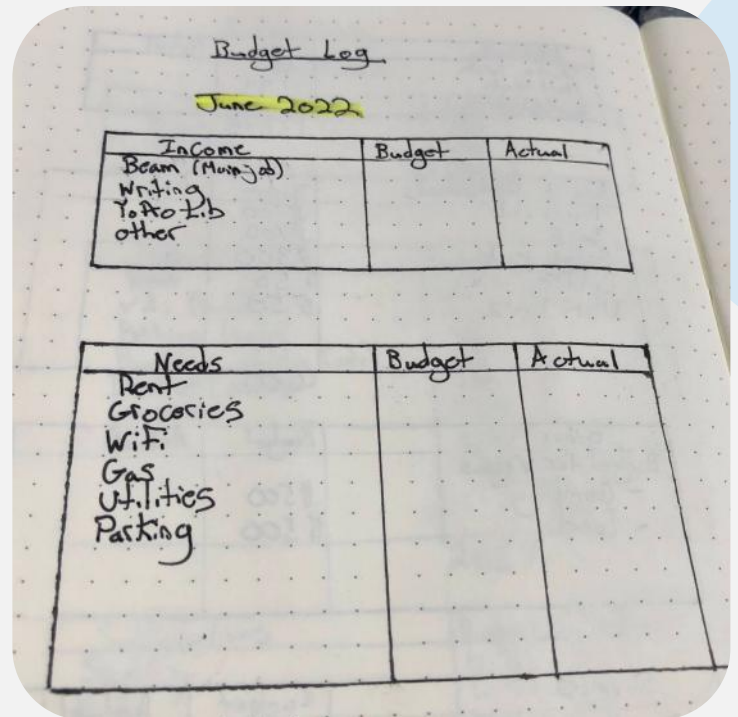 Budget Log
June 2022
Income Budget Actual
Beam (Main job)
Writing
other
Needs Budget Actual
Rent
Groceries
WiFi
Gas
Utilities
Parking